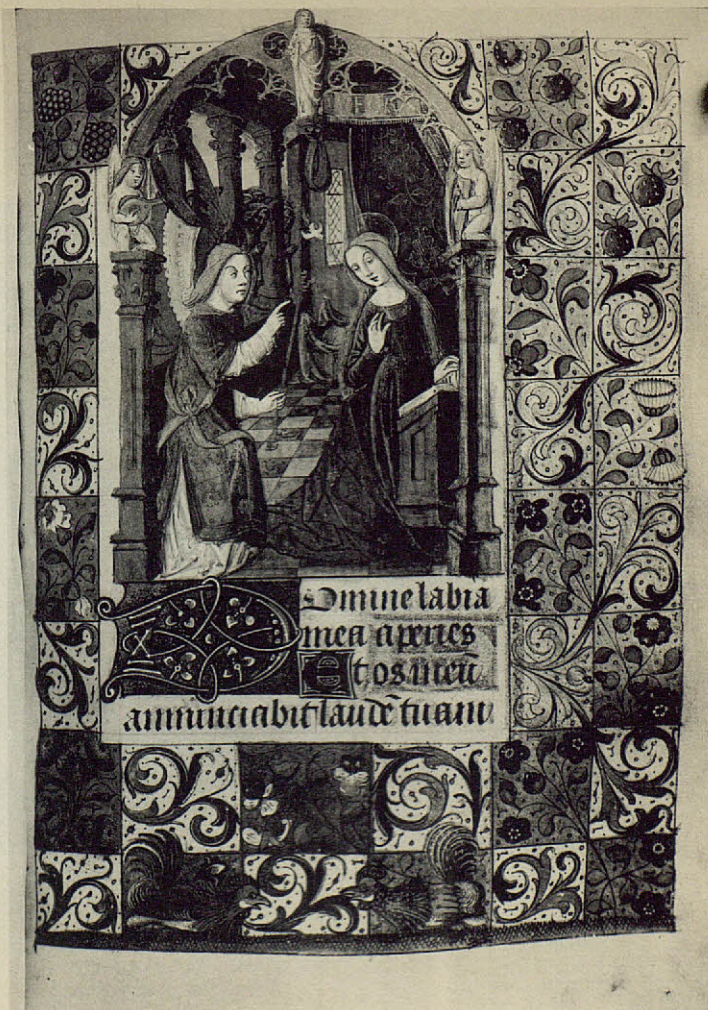 Domine labia
mea aperies
Et os meū
annunciabit laudē tuam.